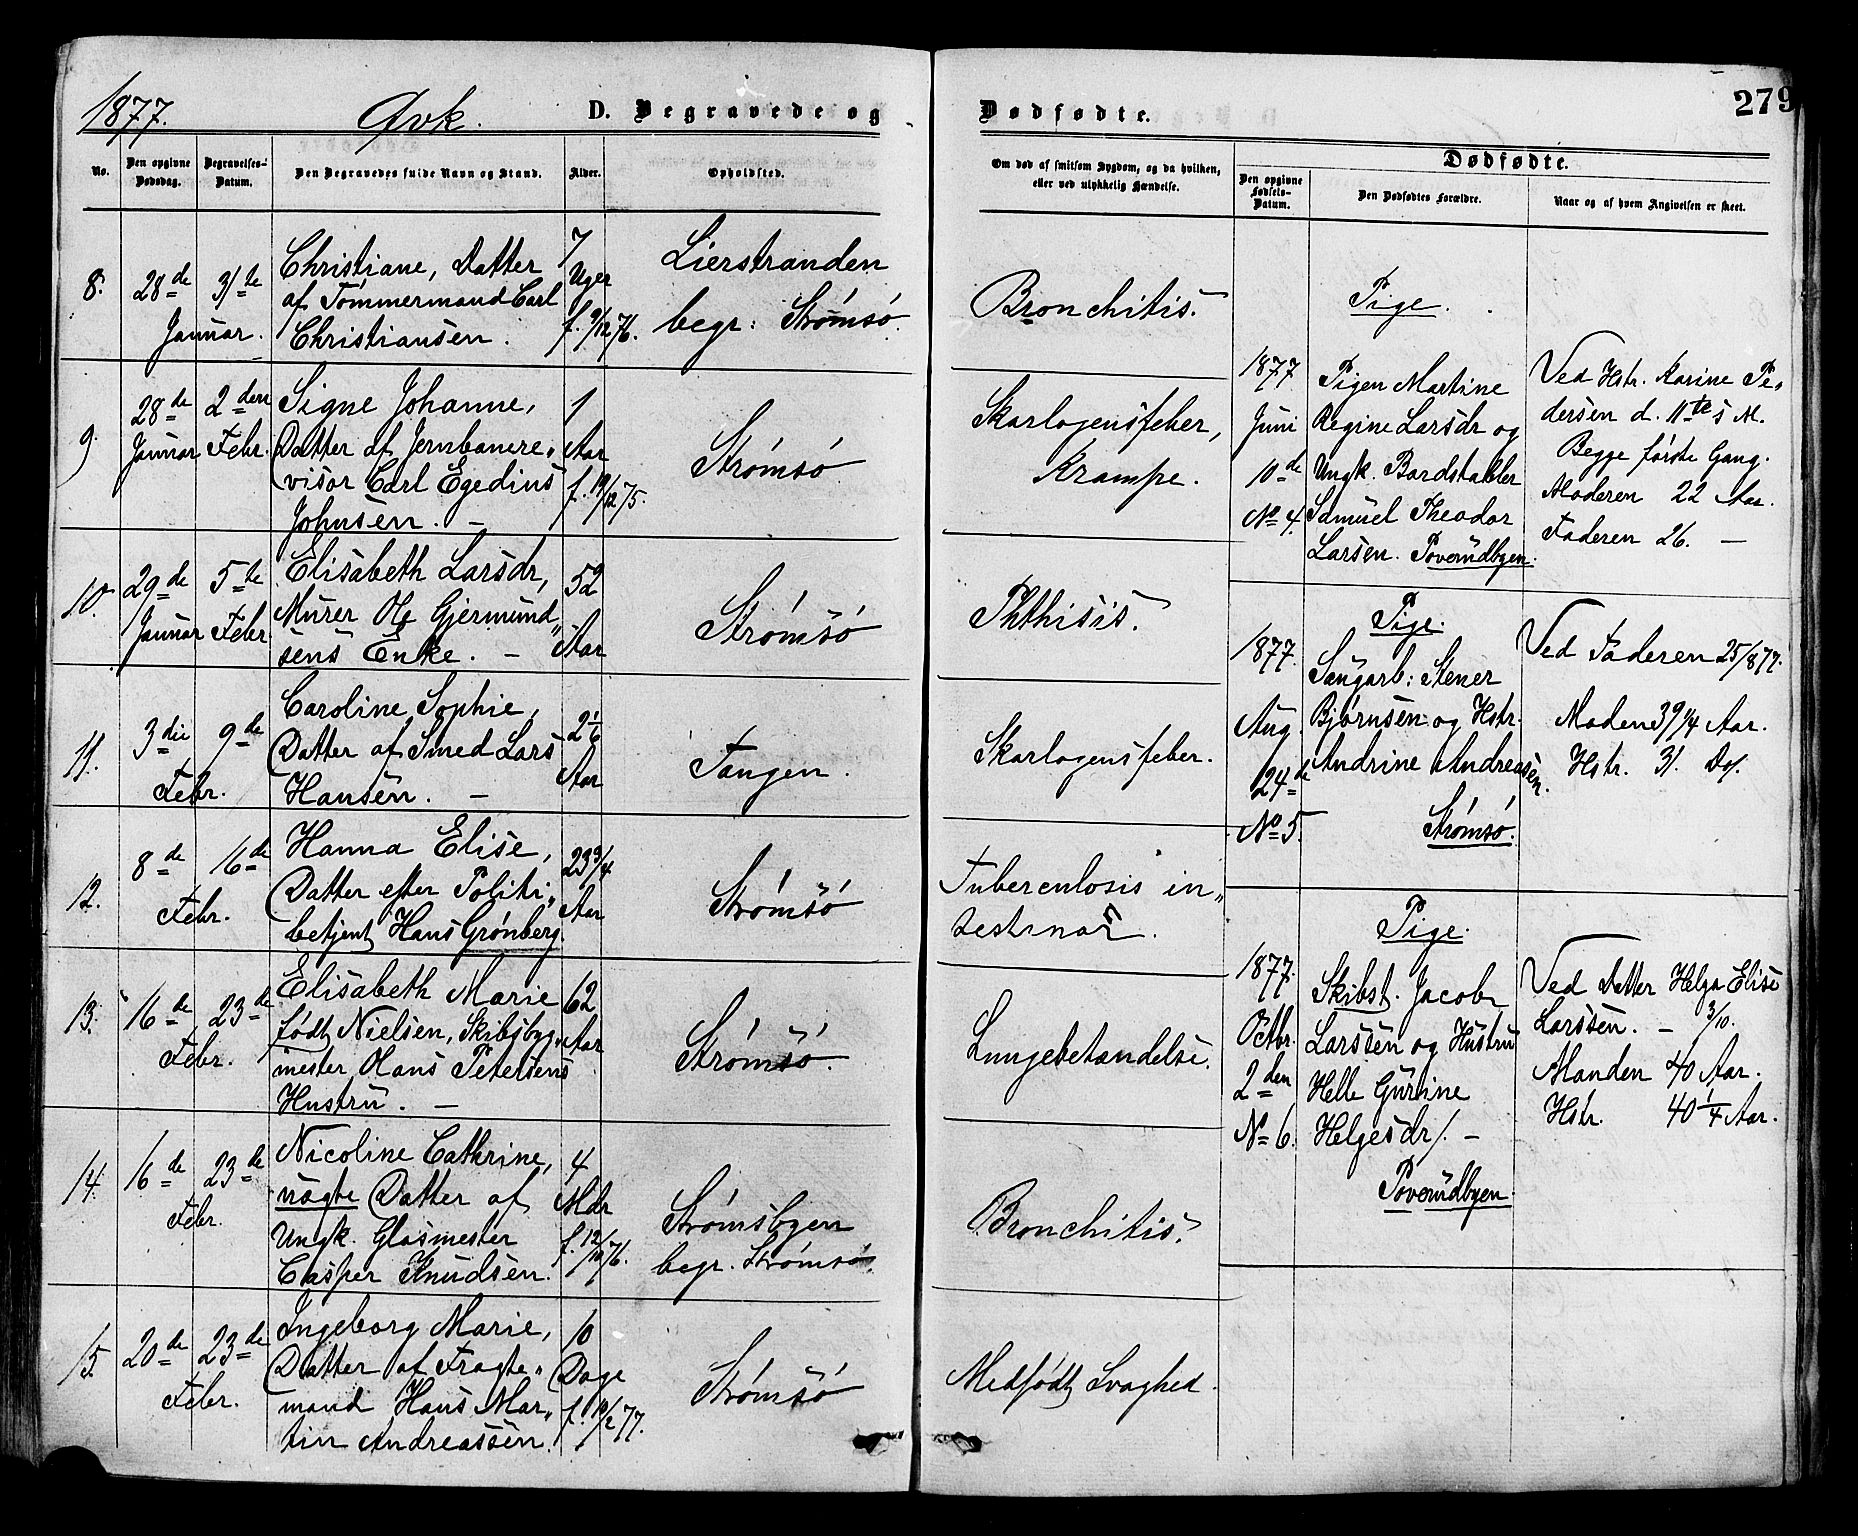 1877. Qvk. D. Begravede og Dødfødte. 279
No. Den opgivne Dødsdag. Begravelses-Datum. Den Begravedes fulde Navn og Stand. Alder. Opholdsted.
Om død af smitsom Sygdom, og da hvilken,
eller ved ulykkelig Hændelse.
Dødfødte.
Den opgivne Fødsels-Datum. Den Dødfødtes Forældre. Naar og af hvem Angivelsen er skeet.
8. 28de 31te
Januar.
Christiane, Datter
af Tømmermand Carl
Christiansen.
7
Uger
f. 9/12 76.
Lierstranden
begr: Strømsø.
Bronchitis.
9. 28de Januar 2den Febr.
Signe Johanne,
Datter af Jernbanere„
visor Carl Egedius
Johnsen. –
1
Aar
f. 19/12 75.
Strømsø
Skarlagensfeber,
Krampe.
10. 29de Januar 5te Febr.
Elisabeth Larsdr,
Murer Ole Gjermund„
sens Enke. –
52
Aar
Strømsø
Phthisis.
11. 3die 9de
Febr.
Caroline Sophie,
Datter af Smed Lars
Hansen. –
2 1/6
Aar
Tangen.
Skarlagensfeber.
12. 8de 16de
Febr.
Hanna Elise,
Datter efter Politi„
betjent Hans Grønberg.
23 3/4
Aar
Strømsø
Tuberculosis in„
testinar.
13. 16de 23de
Febr.
Elisabeth Marie
født Nielsen, Skibsbyg„
mester Hans Petersens
Hustru. –
62
Aar
Strømsø.
Lungebetændelse.
14. 16de 23de
Febr.
Nicoline Cathrine,
uægte Datter af
Ungk. Glasmester
Casper Knudsen.
4
Mdr
f. 12/10 76.
Strømsbyen
begr. Strømsø.
Bronchitis.
15. 20de 23de
Febr.
Ingeborg Marie,
Datter af Fragte„
mand Hans Mar„
tin Andreassen.
10
Dage
f. 10/2 77.
Strømsø
Medfødt Svaghed.
Pige.
1877
Juni
10de
No 4.
Pigen Martine
Regine Larsdr og
Ungk. Bordstabler
Samuel Theodor
Larsen. Poverudbyen.
Ved Hstr. Karine Pe„
dersen d. 11te s M.
Begge første Gang.
Moderen 22 Aar.
Faderen 26. –
Pige.
1877.
Aug.
24de
No 5.
Saugarb: Stener
Bjørnsen og Hstr.
Andrine Andreasen.
Strømsø.
Ved Faderen 25/8 77.
Manden 39 1/4 Aar.
Hstr. 31. Do.
Pige.
1877.
Octbr.
2den
No 6.
Skibst. Jacob
Larssen og Hustru
Helle Gurine
Helgesdr/. –
Poverudbyen.
Ved Datter Helga Elise
Larssen. – 3/10.
Manden 40 Aar.
Hstr. 40 1/4 Aar.